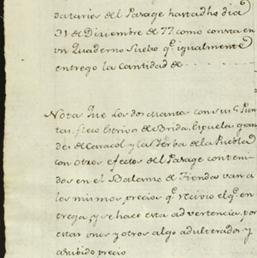 datarios del Parage hasta dho dia
31 de Diciembre de 77 como consta en
un Quaderno Suelto qe igualmente
entrego la Cantidad de
Nota que los dos
de Brida, Espuelas
de Caracol y las de la Puebla
con otros efectos del Parage conteni
dos en el Balance de Tiendas van a
los mismos precios qe recivio el qe en
trega, y se hace esta advertencia, por
estar unos y otros algo adulterados y
subido precio